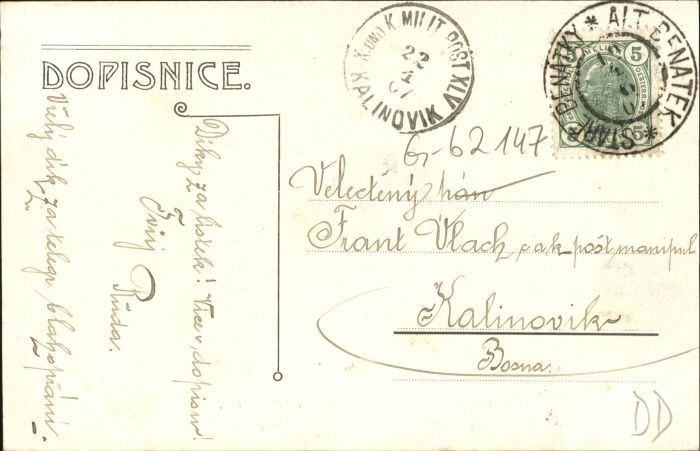 DOPISNICE.
K. UND K. MILIT. POST XLV
22
1
07
KALINOVIK
STARÉ BENÁTKY * ALT BENATEK *
5
5
G-62147
Velectěný pán
Frant Vlach, c a k pošt manipul
Kalinovik
Bosna.
Díky za lístek! Více v dopisu!
Tvůj
Ruda.
Vřelý dík za telegr. blahopřání!
DD